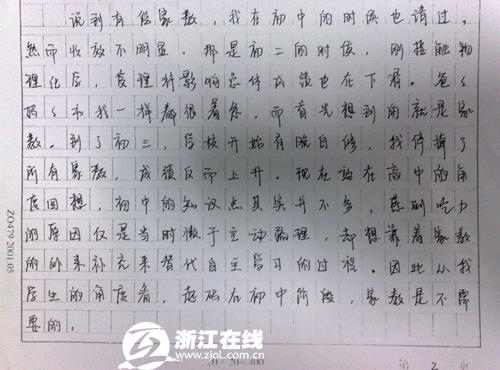 说到有偿家教，我在初中的时候也请过，
然而收效不明显。那是初二的时候，刚接触物
理化后，被理科影响总体成绩也在下滑。爸爸
妈妈和我一样都很着急，而首先想到的就是家
教。到了初三，学校开始有晚自修，我停掉了
所有家教，成绩反而上升。现在站在高中的角
度回想，初中的知识点其实并不多，感到吃力
的原因仅是当时懒于主动梳理，却想靠着家教
的外来补充来替代自主学习的过程。因此从我
学生的角度看，起码在初中阶段，家教是不需
要的。
Z0479 2001.05
浙江在线
www.zjol.com.cn
20×20=400
第 2 页